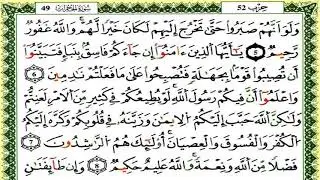 49 سورة الحجرات حزب 52
وَلَوْ أَنَّهُمْ صَبَرُوا حَتَّىٰ تَخْرُجَ إِلَيْهِمْ لَكَانَ خَيْرًا لَّهُمْ وَاللَّهُ غَفُورٌ
رَّحِيمٌ ۝5 يَا أَيُّهَا الَّذِينَ ءَامَنُوا إِن جَاءَكُمْ فَاسِقٌ بِنَبَإٍ فَتَبَيَّنُوا
أَن تُصِيبُوا قَوْمًا بِجَهَالَةٍ فَتُصْبِحُوا عَلَىٰ مَا فَعَلْتُمْ نَادِمِينَ ۝6
وَاعْلَمُوا أَنَّ فِيكُمْ رَسُولَ اللَّهِ لَوْ يُطِيعُكُمْ فِي كَثِيرٍ مِّنَ الْأَمْرِ لَعَنِتُّمْ
وَلَٰكِنَّ اللَّهَ حَبَّبَ إِلَيْكُمُ الْإِيمَانَ وَزَيَّنَهُ فِي قُلُوبِكُمْ وَكَرَّهَ إِلَيْكُمُ
الْكُفْرَ وَالْفُسُوقَ وَالْعِصْيَانَ أُولَٰئِكَ هُمُ الرَّاشِدُونَ ۝7
فَضْلًا مِّنَ اللَّهِ وَنِعْمَةً وَاللَّهُ عَلِيمٌ حَكِيمٌ ۝8 وَإِن طَائِفَتَانِ